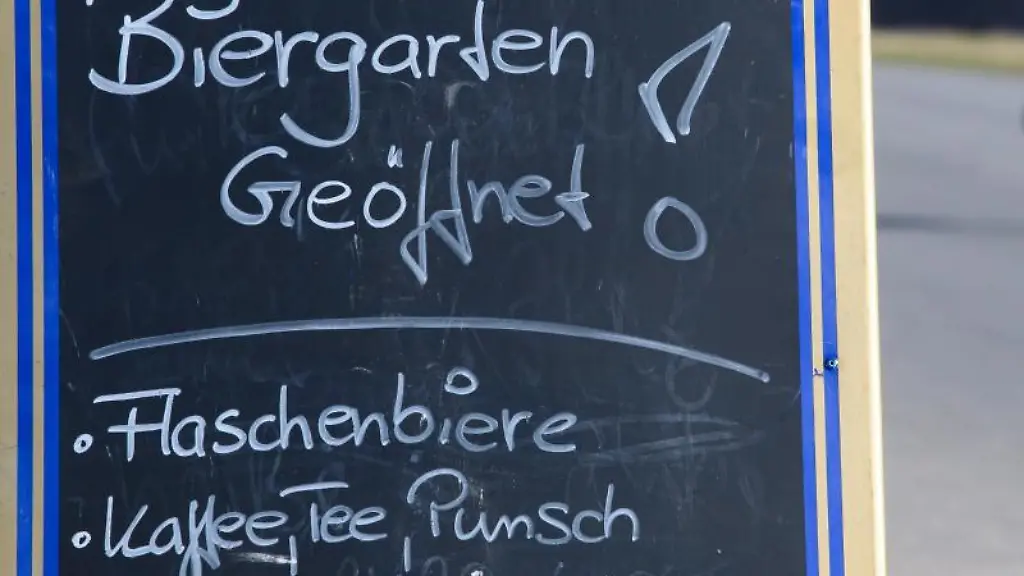 Biergarten !
Geöffnet
• Flaschenbiere
• Kaffee, Tee, Punsch